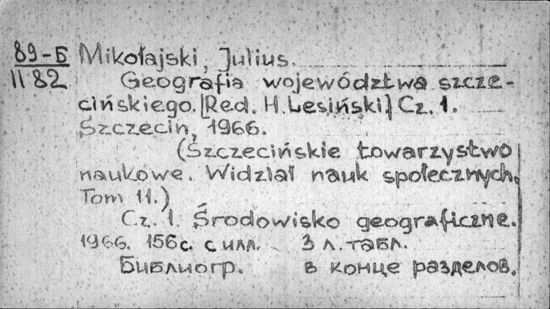 89-Б Mikołajski, Julius.
1182 Geografia województwa szcze-
cińskiego. [Red. H. Lesiński] Cz. 1.
Szczecin, 1966.
(Szczecińskie towarzystwo
naukowe. Widział nauk społecznych.
Tom 11.)
Cz. 1. Środowisko geograficzne.
1966. 156с. с илл. 3 л. табл.
Библиогр. в конце разделов.